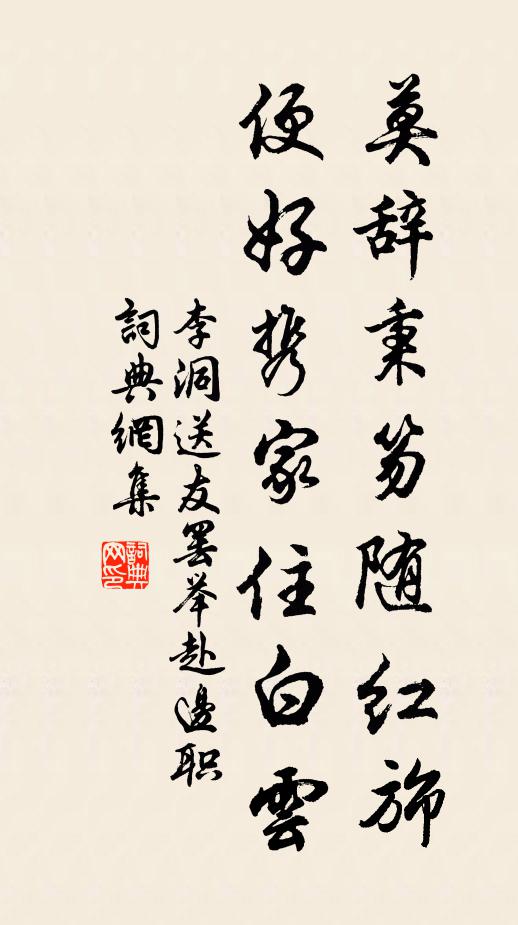 莫辞秉笏随红旆
便好携家住白雲
李洞送友罢举赴邊职
詞典網集
詞典网印